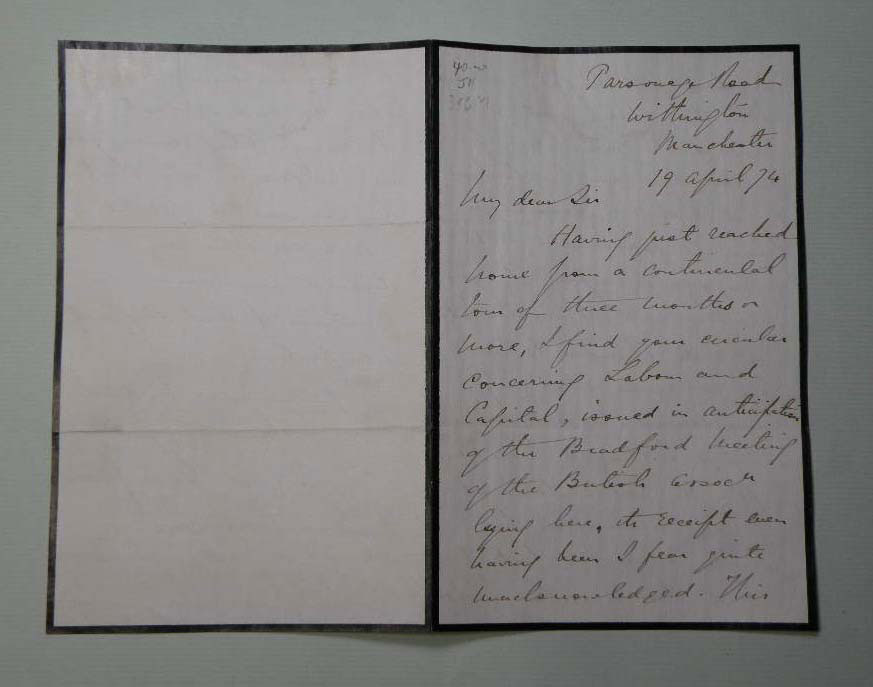 40.00
J11
Parsonage Road
Withington
Manchester
19 April 74
My dear Sir
Having just reached
home from a continental
tour of three months or
more, I find your circular
concerning Labour and
Capital, issued in anticipation
of the Bradford Meeting
of the British Assocn
lying here, its receipt even
having been I fear quite
unacknowledged. This